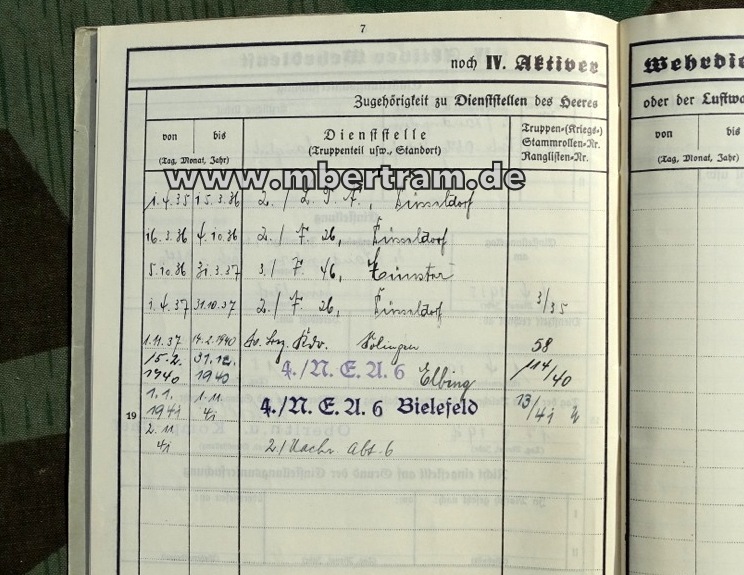 7
noch IV. Aktiver
Wehrdie
Zugehörigkeit zu Dienststellen des Heeres
oder der Luftwa
von
bis
(Tag, Monat, Jahr)
Dienststelle
(Truppenteil usw., Standort)
Truppen-(Kriegs-)
Stammrollen-Nr.
Ranglisten-Nr.
von
bis
(Tag, Monat, Jahr)
www.mbertram.de
1.4.35 15.3.36 2./ Düsseldorf
16.3.36 4.10.36 2./ F. 26, Düsseldorf
5.10.36 31.3.37 3./ F. 46, Münster
1.4.37 31.10.37 2./ F. 26, Düsseldorf 3/35
1.11.37 14.2.1940 Solingen 58
15.2.1940 31.12.1940 4./N.E.A.6 Elbing 114/40
1.1.1941 1.11.41 4./N.E.A.6 Bielefeld 13/41
19
2.11.41 2/Nachr. Abt. 6